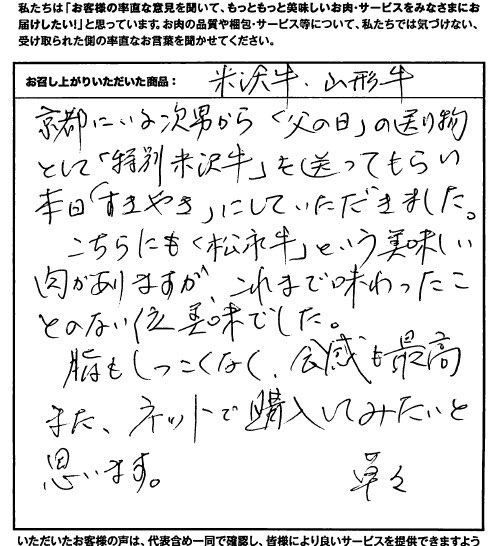 私たちは「お客様の率直な意見を聞いて、もっともっと美味しいお肉・サービスをみなさまにお
届けしたい!」と思っています。お肉の品質や梱包・サービス等について、私たちでは気づけない、
受け取られた側の率直なお言葉を聞かせてください。
お召し上がりいただいた商品： 米沢牛、山形牛
京都にいる次男から〈父の日〉の送り物
として「特別米沢牛」を送ってもらい
本日「すきやき」にしていただきました。
こちらにも〈松永牛〉という美味しい
肉がありますが、これまで味わったこ
とのない位美味でした。
脂もしつこくなく、食感も最高
また、ネットで購入してみたいと
思います。 草々
いただいたお客様の声は、代表含め一同で確認し、皆様により良いサービスを提供できますよう